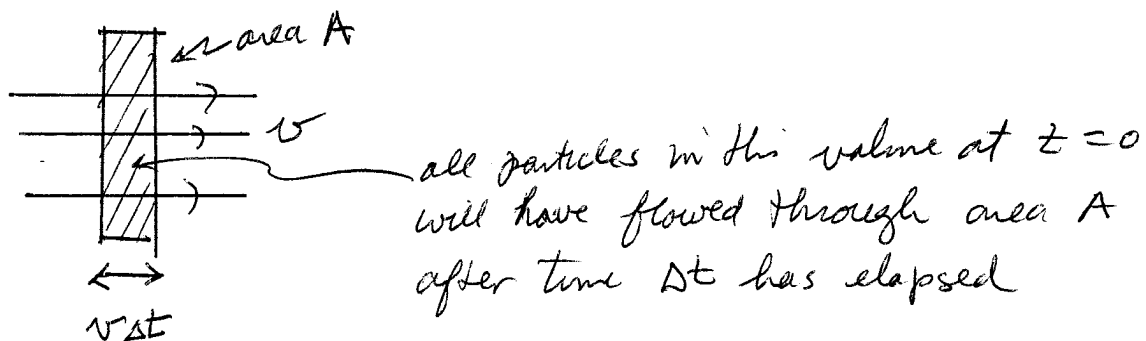 area A
v
all particles in this volume at t = 0
will have flowed through area A
after time Δt has elapsed
v Δt